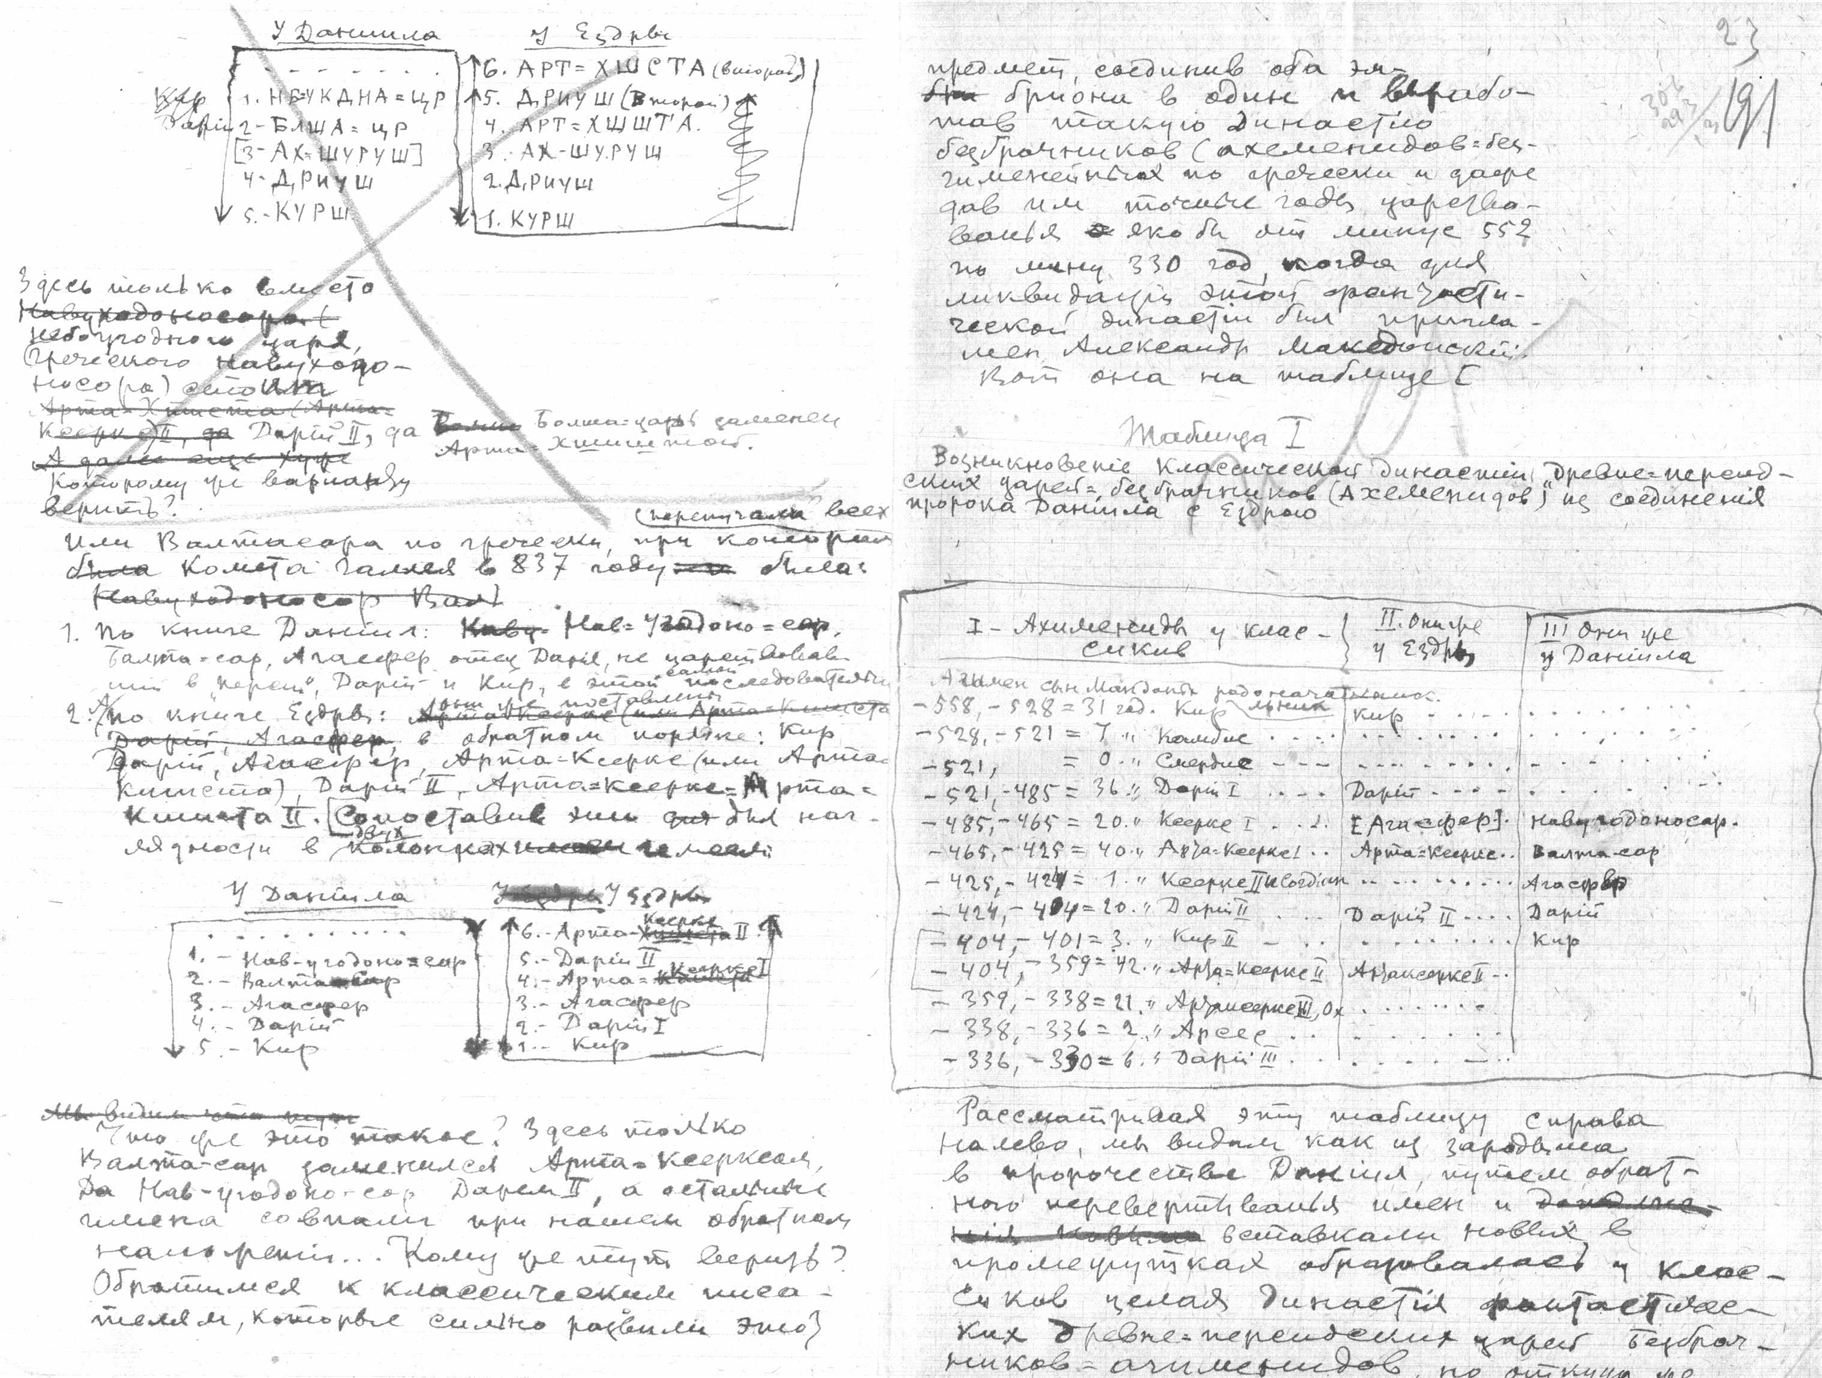 У Даніила
У Ездры
. . . . . . .
1. НБУКДНА=ЦР
2- БЛША= ЦР
[3- АХ=ШУРУШ]
4- Д,РИУШ
5.- КУРШ
Кир
Дарій
6. АРТ= ХШСТА (второй)
5. Д,РИУШ (второй)
4. АРТ=ХШШТА.
3.- АХ-ШУРУШ
2. Д,РИУШ
1. КУРШ
Здесь только вместо
Навуходоносора (
небоугодного царя,
(греческого Навуходо-
носора) стоит
Арта-Хшиста (Арта=
Ксеркс) II, да Дарій II, да
Болша=царь заменен
Арта-Хшиштой.
А далее еще хуже
Которому же варианту
верить?
(перепугала всех
или Валтасара по гречески, при котором
была Комета Галлея в 837 году была:
Навуходоносор Валт
1. По книге Даніил: Наву- Нав=Угодоно=сор,
Балта=сар, Агасфер отец Дарія, не царствовав-
шій в "персіи", Дарій и Кир, в этой самой последователь
2. А по книге Ездры: они же поставлены
Арта=Ксеркс (или Арта=Кшиста
Дарій, Агасфер, в обратном порядке: Кир
Дарій, Агасфер, Арта=Ксеркс (или Арта=
Кшиста), Дарій II, Арта=Ксеркс=Арта=
Кшиста II. [Сопоставив эти для наг-
лядности в двух колонках имеем:
У Даніила
У Ездры
. . . . . . . . .
1. - Нав-угодоно=сор
2. - Валта=сар
3. - Агасфер
4. - Дарій
5. - Кир
6.- Арта-Ксеркс II
5.- Дарій II
4.- Арта=Ксеркс I
3.- Агасфер
2.- Дарій I
1.- Кир
Мы видим что
Что же это такое? Здесь только
Валта-сар заменился Арта=Ксерксом,
Да Нав-угодоно-сор Дарем II, а остальные
имена совпали при нашем обратном
Кому же тут верить?
Обратимся к классическим писа-
телям, которые сильно развили это
23
191
предмет, соединив оба эм-
бриона в один и вырабо-
тав такую династію
безбрачников (ахеменидов=без-
гименейных по гречески и даже
дав им точные годы царство-
ванья якобы от минус 552
по минус 330 год, когда для
ликвидаціи этой фантасти-
ческой династіи был пригла-
шен Александр Македонскій.
Вот она на таблице [
Таблица I
Возникновеніе классической династіи "древне=персид-
ских царей= безбрачников (Ахеменидов) из соединенія
пророка Даніила с Ездрою
I - Ахимениды у клас-
сиков
II. Они же
у Ездры
III Они же
у Даніила
Ахимен сын родоначальник.
-558,-528 = 31 год. Кир Кир - . . . . .
-528,-521 = 7 " Камбис . . . .
-521, = 0. " Смердис - - -
-521,-485 = 36 " Дарій I . . - . Дарій - . . .
-485,-465 = 20. " Ксеркс I . . . [Агасфер]. Навугодоносор.
-465,-425 = 40 " Арта=Ксеркс I . . Арта=Ксеркс . . Валта-сар
-425,-424 = 1. " Ксеркс II и Согдіан . . . . . . Агасфер
-424,-404 = 20. " Дарій II . . . Дарій II . . . . Дарій
-404,-401 = 3. " Кир II - . . . . . . . . Кир
-404,-359 = 42. " Арта=Ксеркс II Артаксеркс II - .
-359,-338 = 21. " Артаксеркс III, Ох . . . . . . .
-338,-336 = 2. " Арсес . . .
-336,-330 = 6. " Дарій III . . .
Рассматривая эту таблицу справа
налево, мы видим как из зародыша
в пророчестве Даніил, путем обрат-
ного перевертыванья имен и
вставками новых в
промежутках образовалась у клас-
сиков целая династія фантастичес-
ких древне=персидских царей Безбрач-
ников=ахименидов, но откуда же